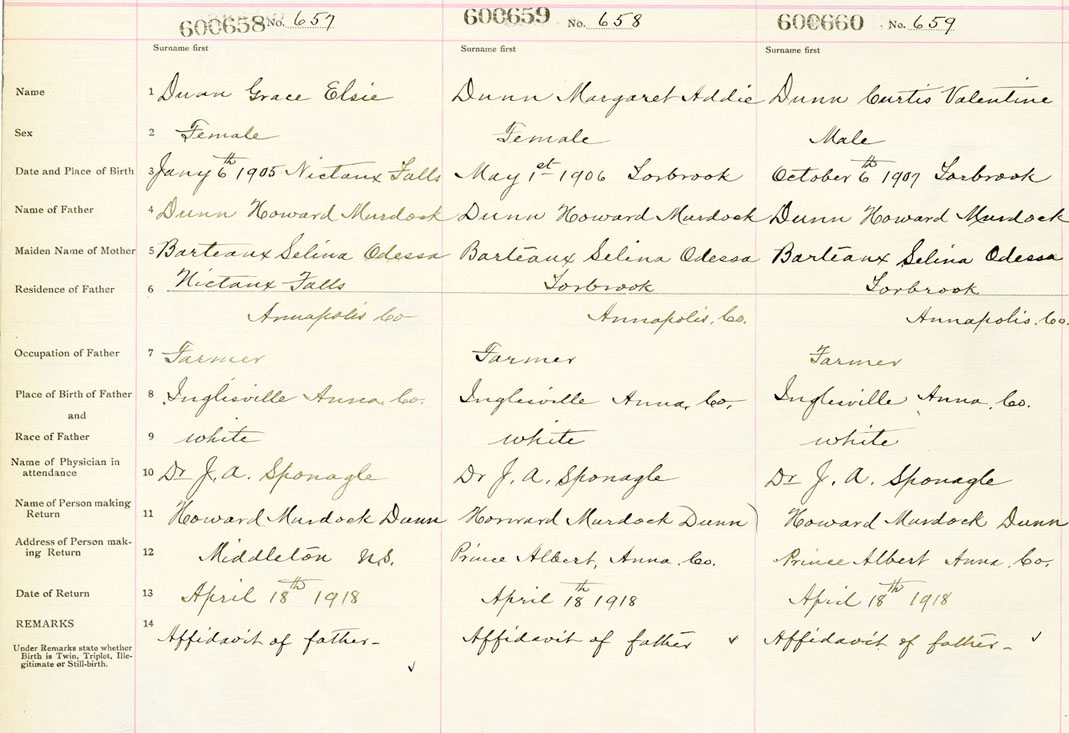 600658 No. 657 600659 No. 658 600660 No. 659
Surname first Surname first Surname first
Name 1 Dunn Grace Elsie Dunn Margaret Addie Dunn Curtis Valentine
Sex 2 Female Female Male
Date and Place of Birth 3 Jany 6th 1905 Nictaux Falls May 1st 1906 Torbrook October 6th 1907 Torbrook
Name of Father 4 Dunn Howard Murdock Dunn Howard Murdock Dunn Howard Murdock
Maiden Name of Mother 5 Barteaux Selina Odessa Barteaux Selina Odessa Barteaux Selina Odessa
Residence of Father 6 Nictaux Falls Torbrook Torbrook
Annapolis Co Annapolis. Co. Annapolis. Co.
Occupation of Father 7 Farmer Farmer Farmer
Place of Birth of Father 8 Inglisville Anna. Co. Inglisville Anna. Co. Inglisville Anna. Co.
and
Race of Father 9 white white white
Name of Physician in
attendance 10 Dr J. A. Sponagle Dr J. A. Sponagle Dr J. A. Sponagle
Name of Person making
Return 11 Howard Murdock Dunn Howard Murdock Dunn Howard Murdock Dunn
Address of Person mak-
ing Return 12 Middleton N.S. Prince Albert, Anna. Co. Prince Albert Anna. Co.
Date of Return 13 April 18th 1918 April 18th 1918 April 18th 1918
REMARKS 14 Affidavit of father Affidavit of father Affidavit of father
Under Remarks state whether
Birth is Twin, Triplet, Ille-
gitimate or Still-birth.